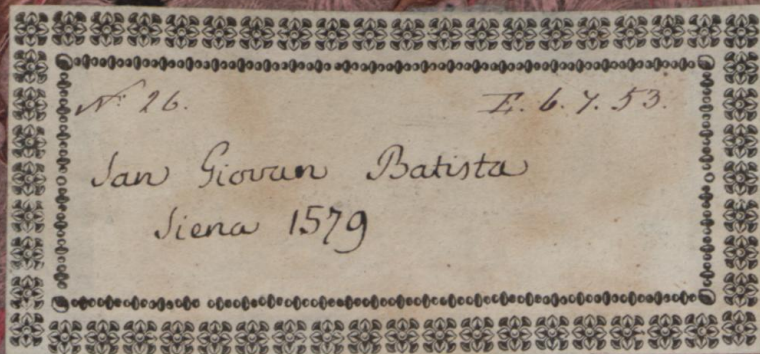 No 26. E. 6. 7. 53.
San Giovan Batista
Siena 1579